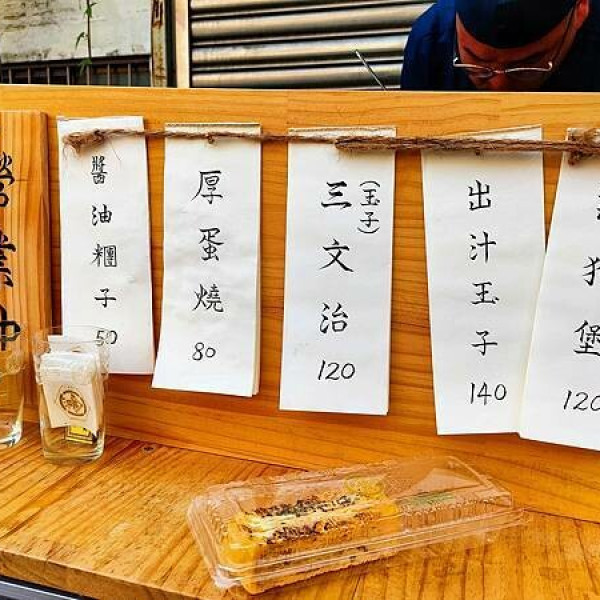 營業中
醬油糰子
50
厚蛋燒
80
(玉子)
三文治
120
出汁玉子
140
狗堡
120